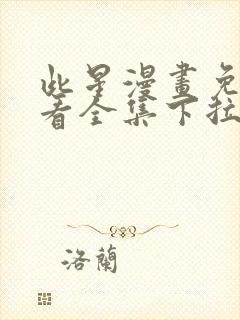 些星漫畫免
看全集下拉
洛蘭